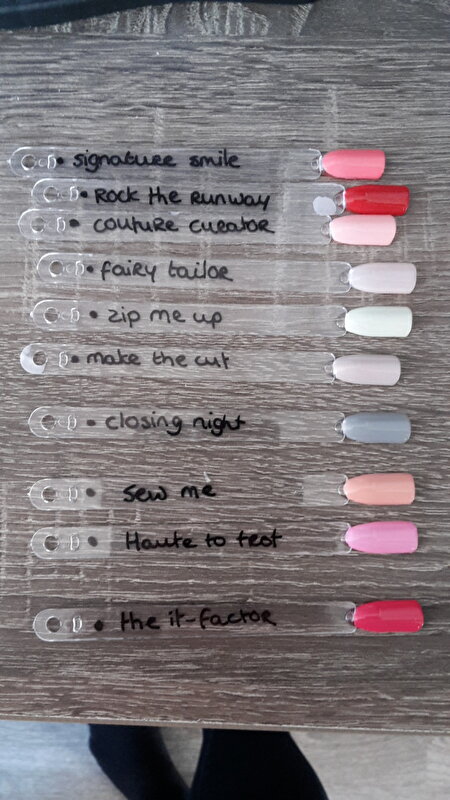 • signature smile
• Rock the Runway
• couture curator
• fairy tailor
• zip me up
• make the cut
• closing night
• sew me
• Haute to trot
• the it-factor